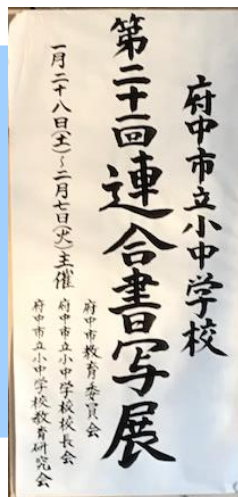 府中市立小中学校
第二十一回連合書写展
一月二十八日(土)~二月七日(火)主催
府中市教育委員会
府中市立小中学校校長会
府中市立小中学校教育研究会